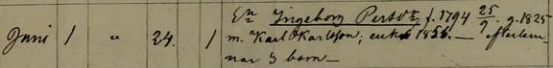 Juni 1 " 24. 1 En Ingeborg Persdr, f. 1794 25/9. g. 1825
m. Karl Karlsson; enka 1856. — efterlem-
nar 3 barn —